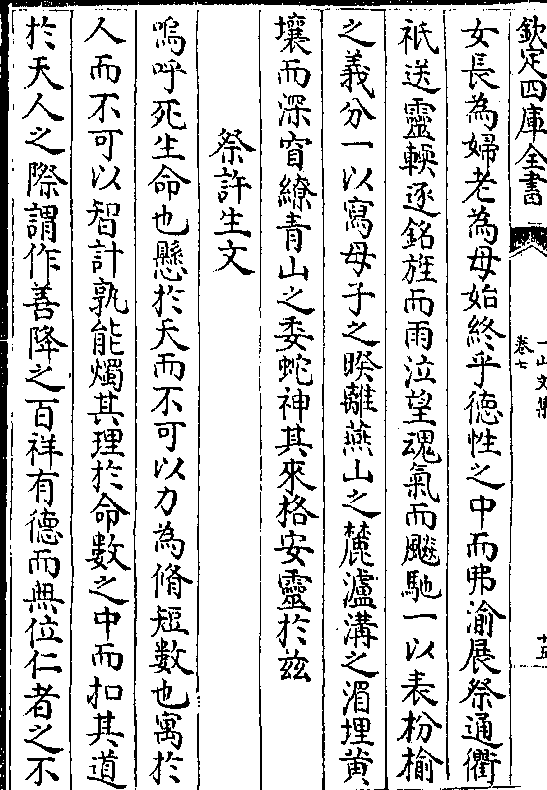 欽定四庫全書
一山文集
卷七
十五
女長為婦老為母始終乎德性之中而弗渝展祭通衢
祇送靈輭逐銘旌而雨泣望魂氣而飈馳一以表枌榆
之義分一以寫母子之暌離燕山之麓瀘溝之湄埋黄
壤而深窅繚青山之委蛇神其來格安靈於兹
祭許生文
嗚呼死生命也懸於天而不可以力為脩短數也寓於
人而不可以智計孰能燭其理於命數之中而扣其道
於天人之際謂作善降之百祥有德而無位仁者之不